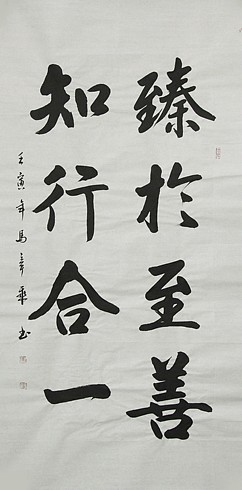 臻於至善
知行合一
壬寅年馬亭乘书